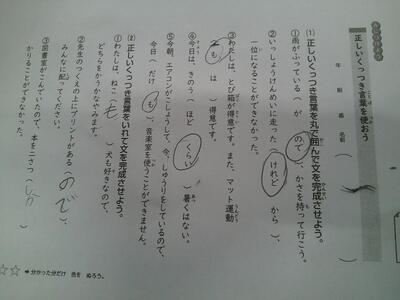 正しいくっつき言葉を使おう
年 組 番 名前( )
(1)正しいくっつき言葉を丸で囲んで文を完成させよう。
①雨がふっている( が ので )、かさを持って行こう。
②いっしょうけんめいに走った( けれど から )、
一位になることができなかった。
③わたしは、とび箱が得意です。また、マット運動
( も は )得意です。
④今日は、きのう( ほど くらい )暑くはない。
⑤今朝、エアコンがこしょうして、今、しゅうりをしているので、
今日( だけ も )、音楽室を使うことができません。
(2)正しいくっつき言葉をいれて文を完成させよう。
①わたしは、ねこ( も )犬も好きなので、
どちらをかうかなやみます。
②先生のつくえの上にプリントがある( ので )、
みんなに配ってください。
③図書室がこんでいたので、本を二さつ( しか )
かりることができなかった。
☆☆ ➡分かった分だけ 色を ぬろう。